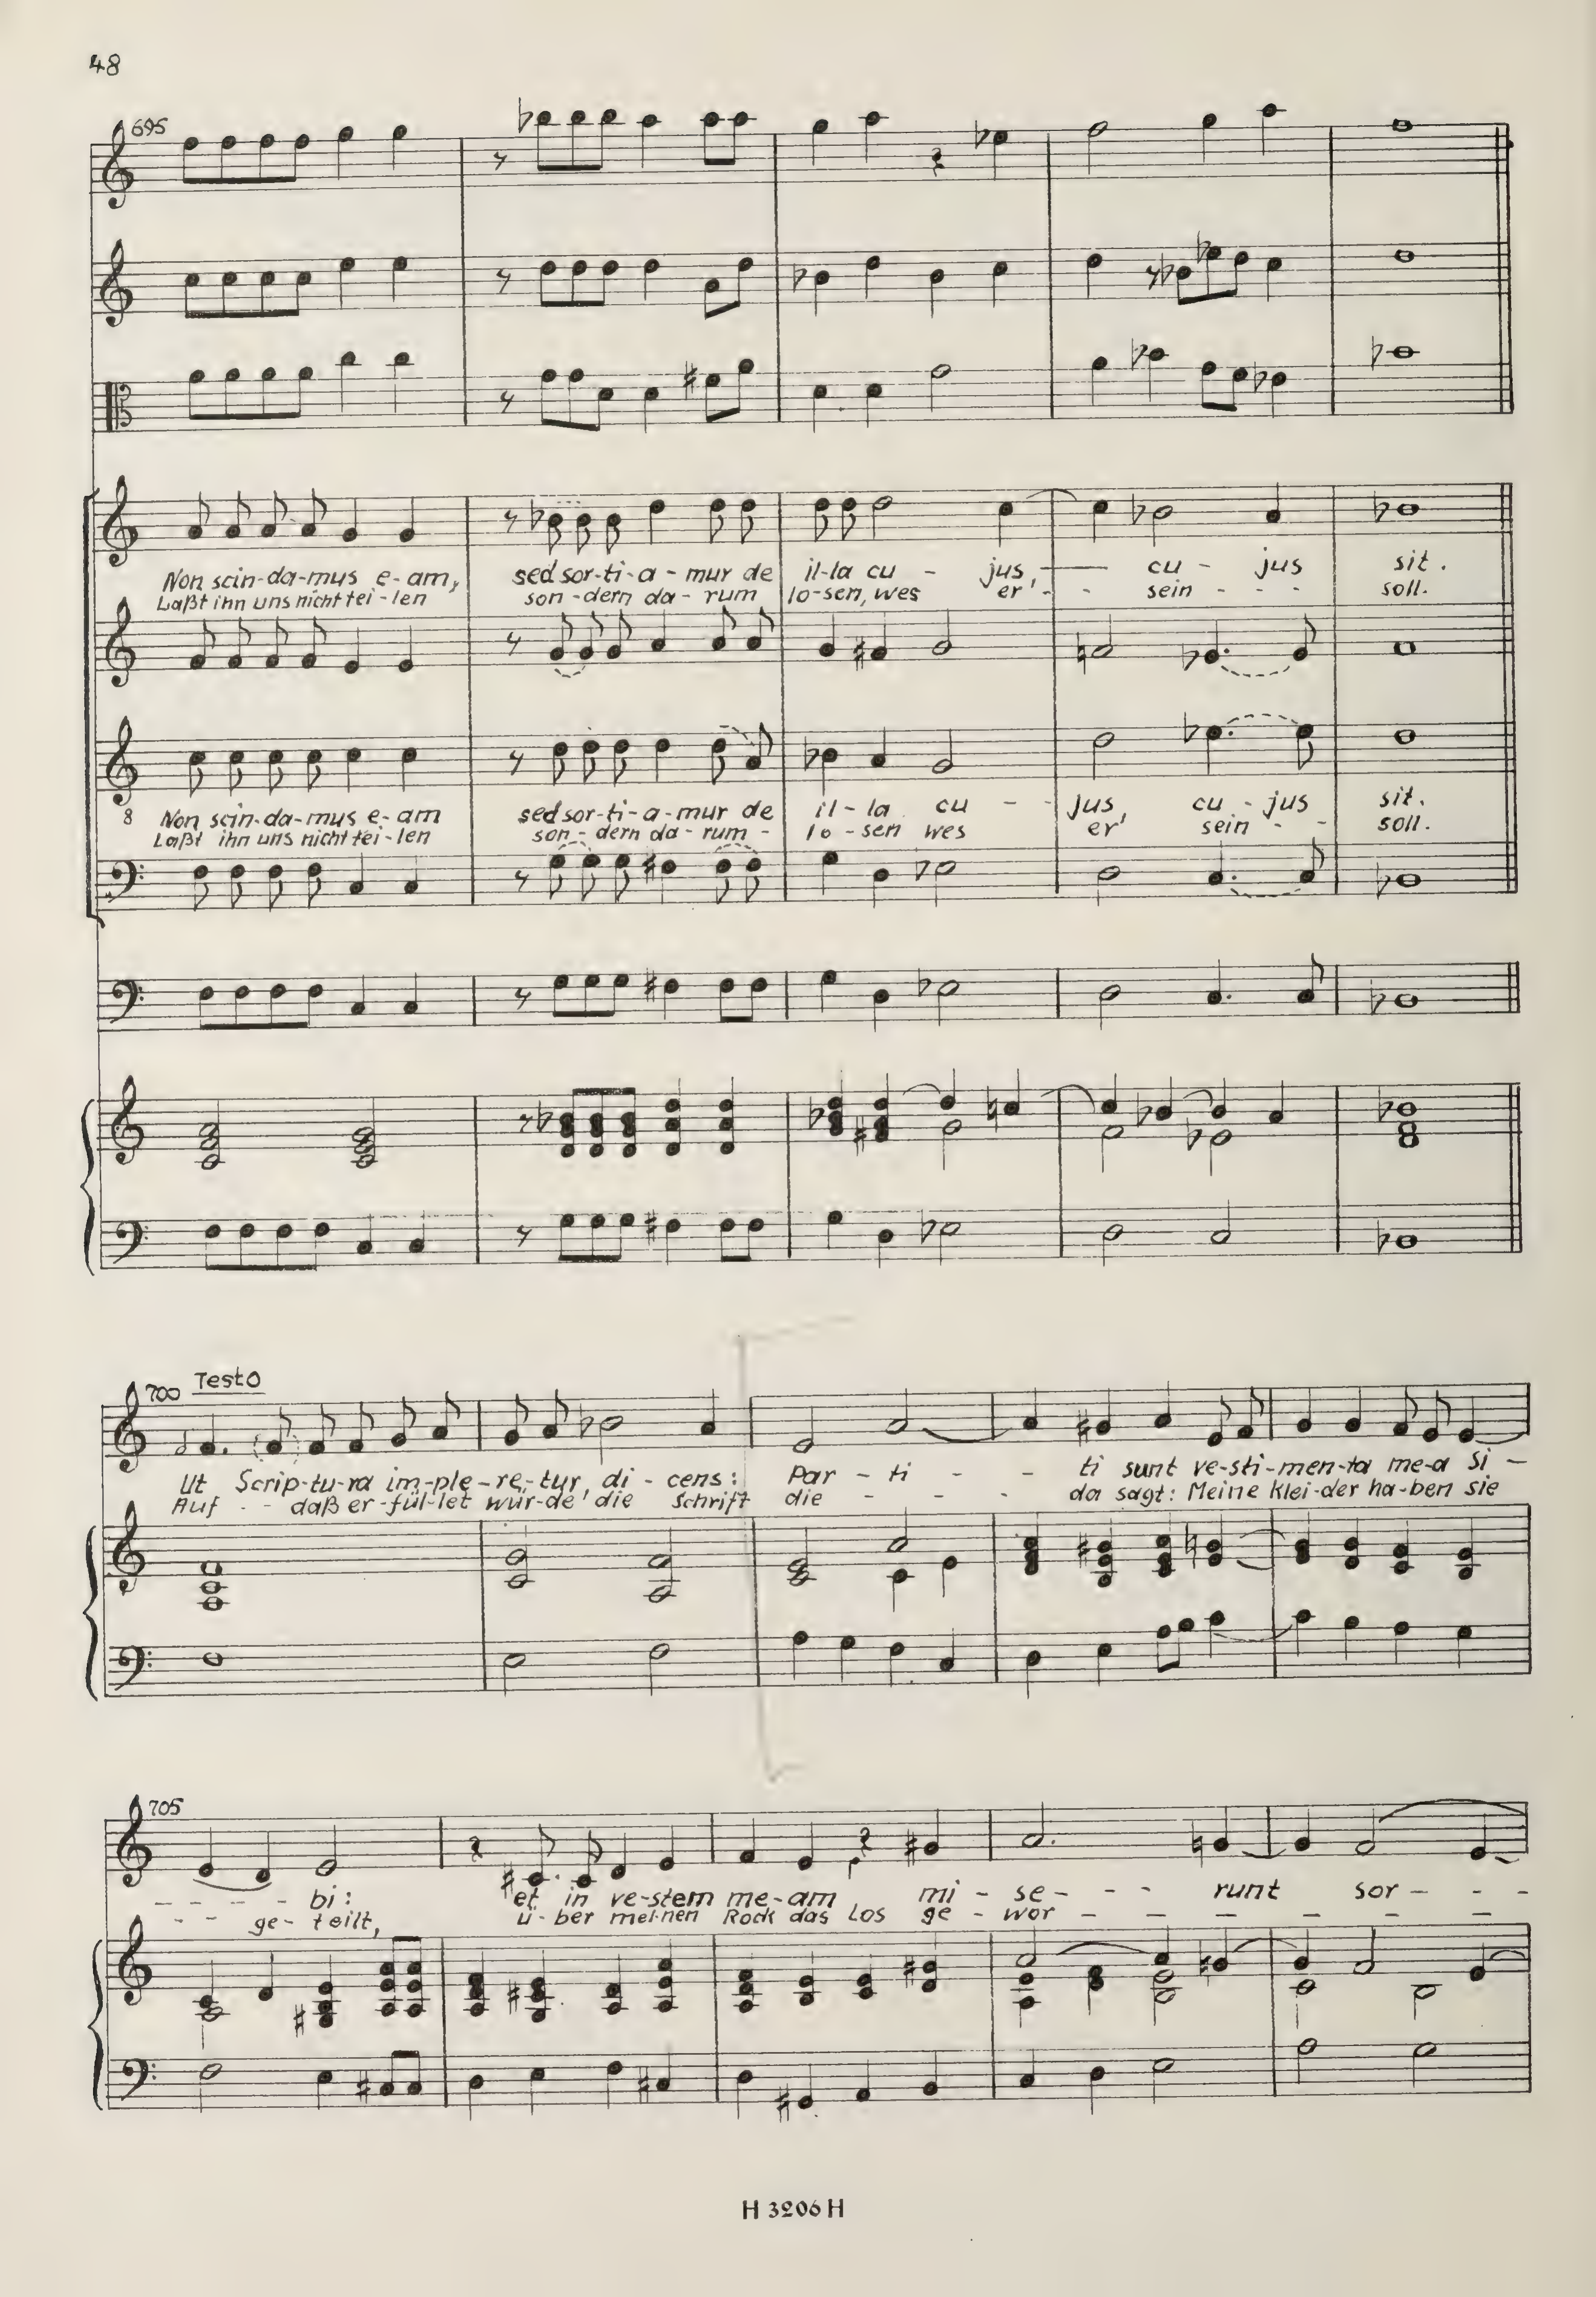 48
695
Non scin-da-mus e-am, sed sor-ti-a-mur de il-la cu - jus, - cu - jus sit.
Laßt ihn uns nicht tei-len son-dern da-rum lo-sen, wes er' - - sein - - - soll.
8 Non scin-da-mus e-am sed sor-ti-a-mur de il-la cu - - jus, cu-jus sit.
Laßt ihn uns nicht tei-len son-dern da-rum - lo-sen wes er' sein - - soll.
700 Testo
Ut Scrip-tu-ra im-ple-re-tur, di-cens: Par - ti - - ti sunt ve-sti-men-ta me-a si -
Auf - - daß er-fül-let wür-de' die Schrift die - - - - da sagt: Meine Klei-der ha-ben sie
705
- - - - bi: et in ve-stem me-am mi - se - - - runt sor - - -
- - ge-teilt, ü-ber mei-nen Rock das Los ge - wor - - - - - -
H 3206 H